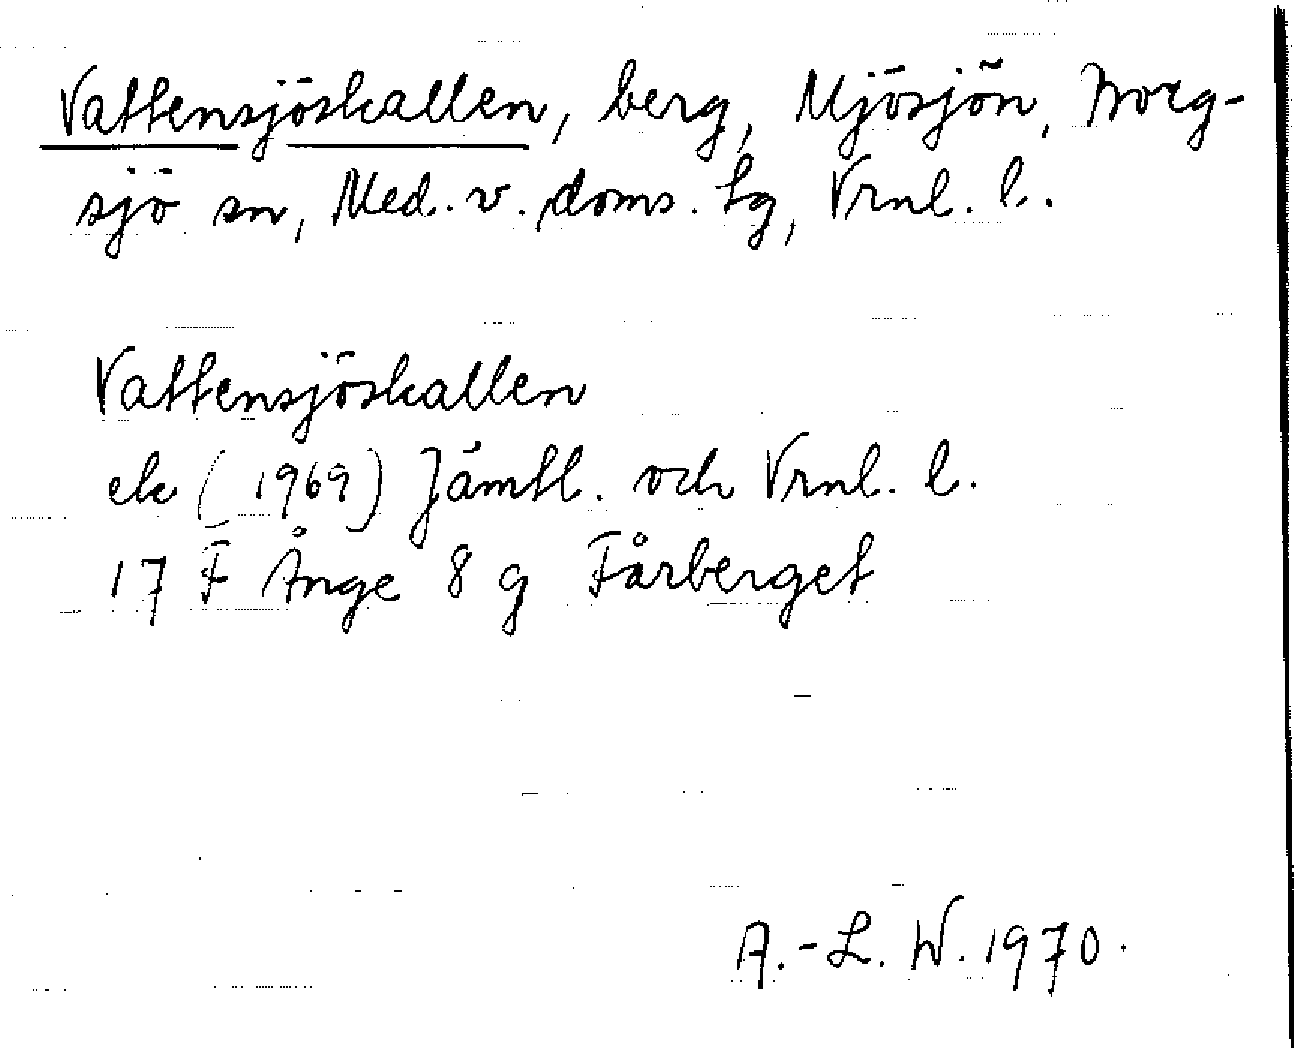 Vattensjöskallen, berg, Mjösjön, Borg-
sjö sn, Med. v. doms. tg, Vrnl. l.
Vattensjöskallen
ek (1969) Jämtl. och Vrnl. l.
17 F Ånge 8 g Fårberget
A.-L. W. 1970.